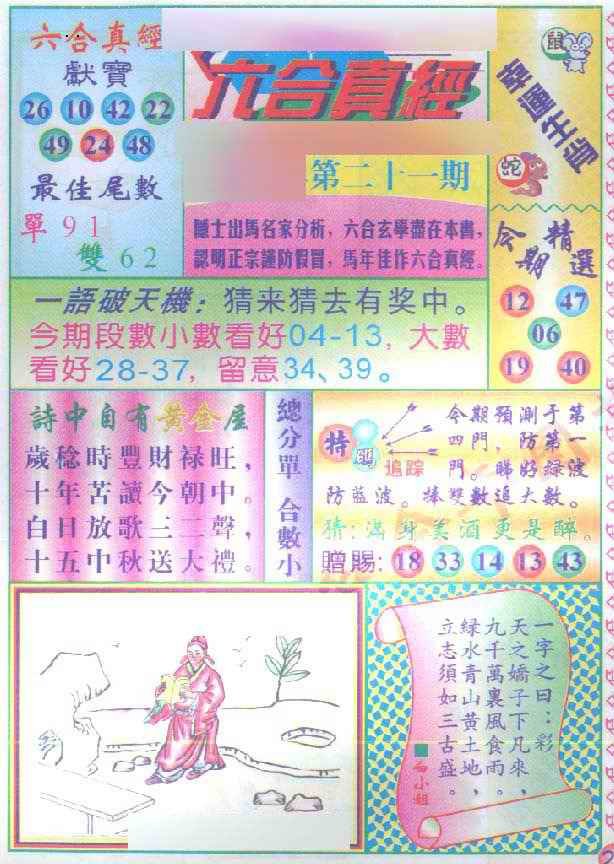 六合真經
獻寶
26 10 42 22
49 24 48
最佳尾數
單 9 1
雙 6 2
六合真經
第二十一期
隱士出馬名家分析，六合玄學盡在本書，
認明正宗謹防假冒，馬年佳作六合真經。
幸運生肖
鼠
蛇
今期精選
12 47
06
19 40
一語破天機：猜来猜去有奖中。
今期段數小數看好04-13, 大數
看好28-37, 留意34、39。
詩中自有黃金屋
歲稔時豐財禄旺，
十年苦讀今朝中。
白日放歌三二聲，
十五中秋送大禮。
總分單 合數小
特
碼
追踪
今期預測于第
四門，防第一
門。睇好绿波
防蓝波。捧雙數追大數。
猜：滿身美酒更是醉。
贈賜：18 33 14 13 43
一字之曰：彩
天之嬌子下凡來，
九千萬裏風食雨。
緑水青山黄土地，
立志須如三古盛。
小姐